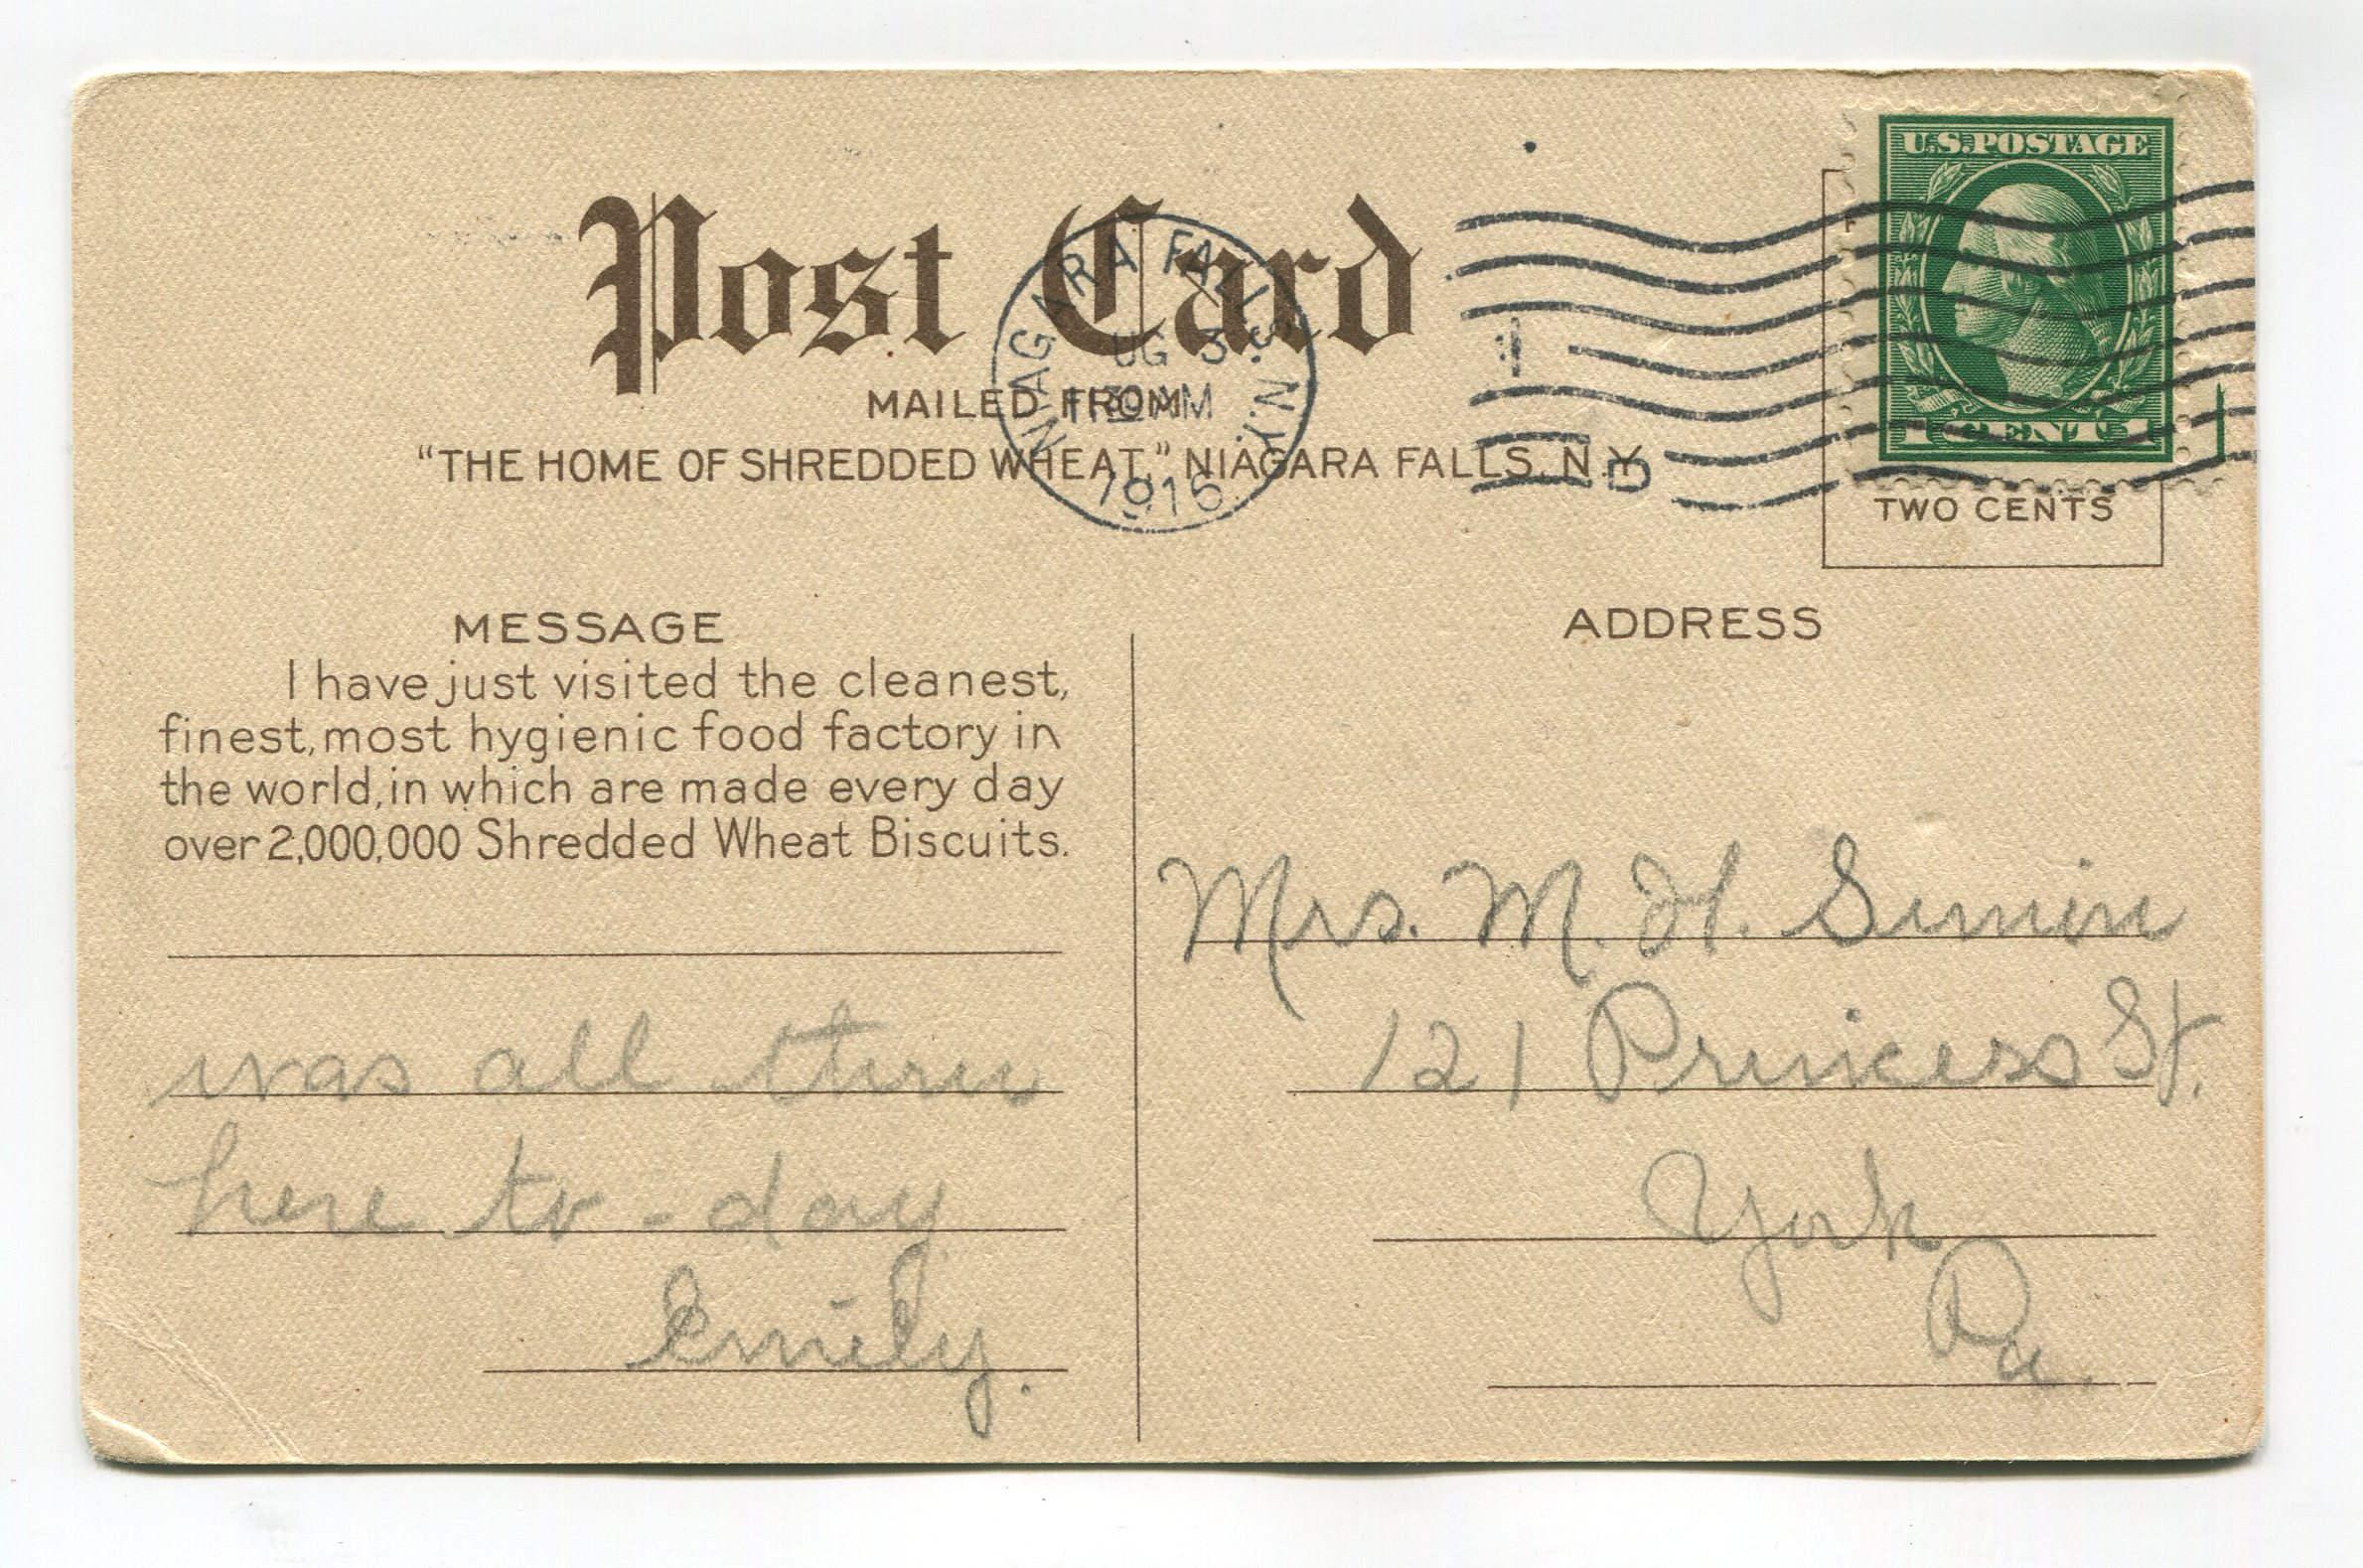 U.S. POSTAGE
1 CENT 1
Post Card
NIAGARA FALLS, N.Y.
UG 3
1130 AM
1916
MAILED FROM
"THE HOME OF SHREDDED WHEAT," NIAGARA FALLS, N.Y.
D
TWO CENTS
MESSAGE
I have just visited the cleanest,
finest, most hygienic food factory in
the world, in which are made every day
over 2,000,000 Shredded Wheat Biscuits.
was all thru
here to-day
Emily.
ADDRESS
Mrs. M. H. Simon
121 Princess St.
York
Pa.